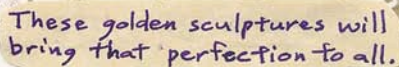 These golden sculptures will
bring that perfection to all.